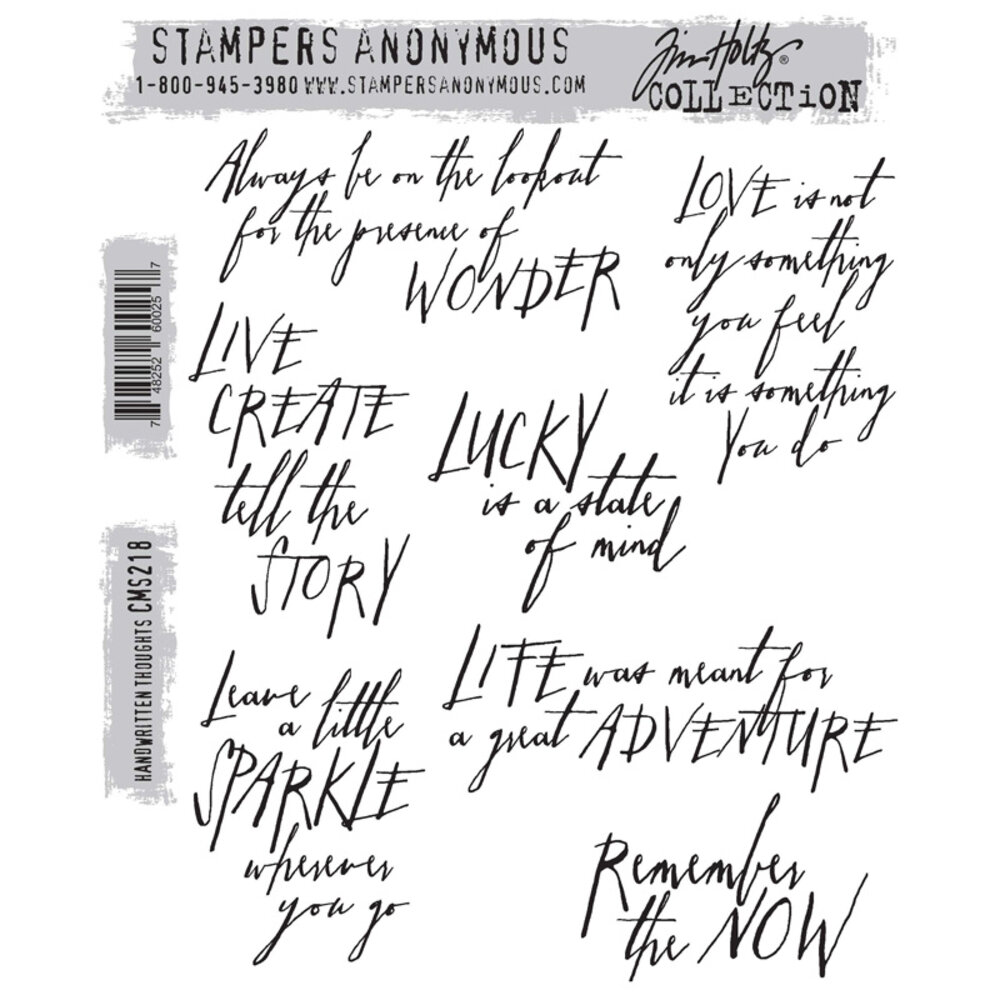 STAMPERS ANONYMOUS
1-800-945-3980 WWW.STAMPERSANONYMOUS.COM
Tim Holtz®
COLLECTION
Always be on the lookout
for the presence of
WONDER
LOVE is not
only something
you feel
it is something
You do
LIVE
CREATE
tell the
STORY
LUCKY
is a state
of mind
Leave
a little
SPARKLE
wherever
you go
LIFE was meant for
a great ADVENTURE
Remember
the NOW
7 48252 60025 7
HANDWRITTEN THOUGHTS CMS218